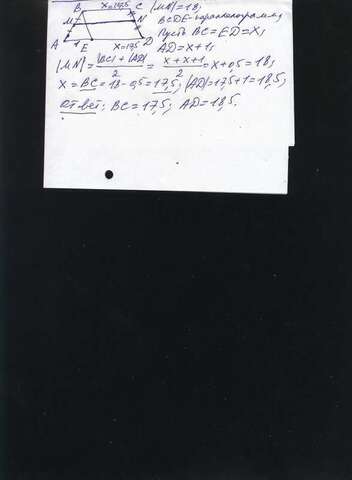 B x=17,5 C |MN|=18;
M N BCDE-параллелограмм,
Пусть BC=ED=x;
A 1 E x=17,5 D AD=x+1;
|MN|=(|BC|+|AD|)/2=(x+x+1)/2=x+0,5=18;
x=BC=18-0,5=17,5; |AD|=17,5+1=18,5;
Ответ: BC=17,5; AD=18,5.